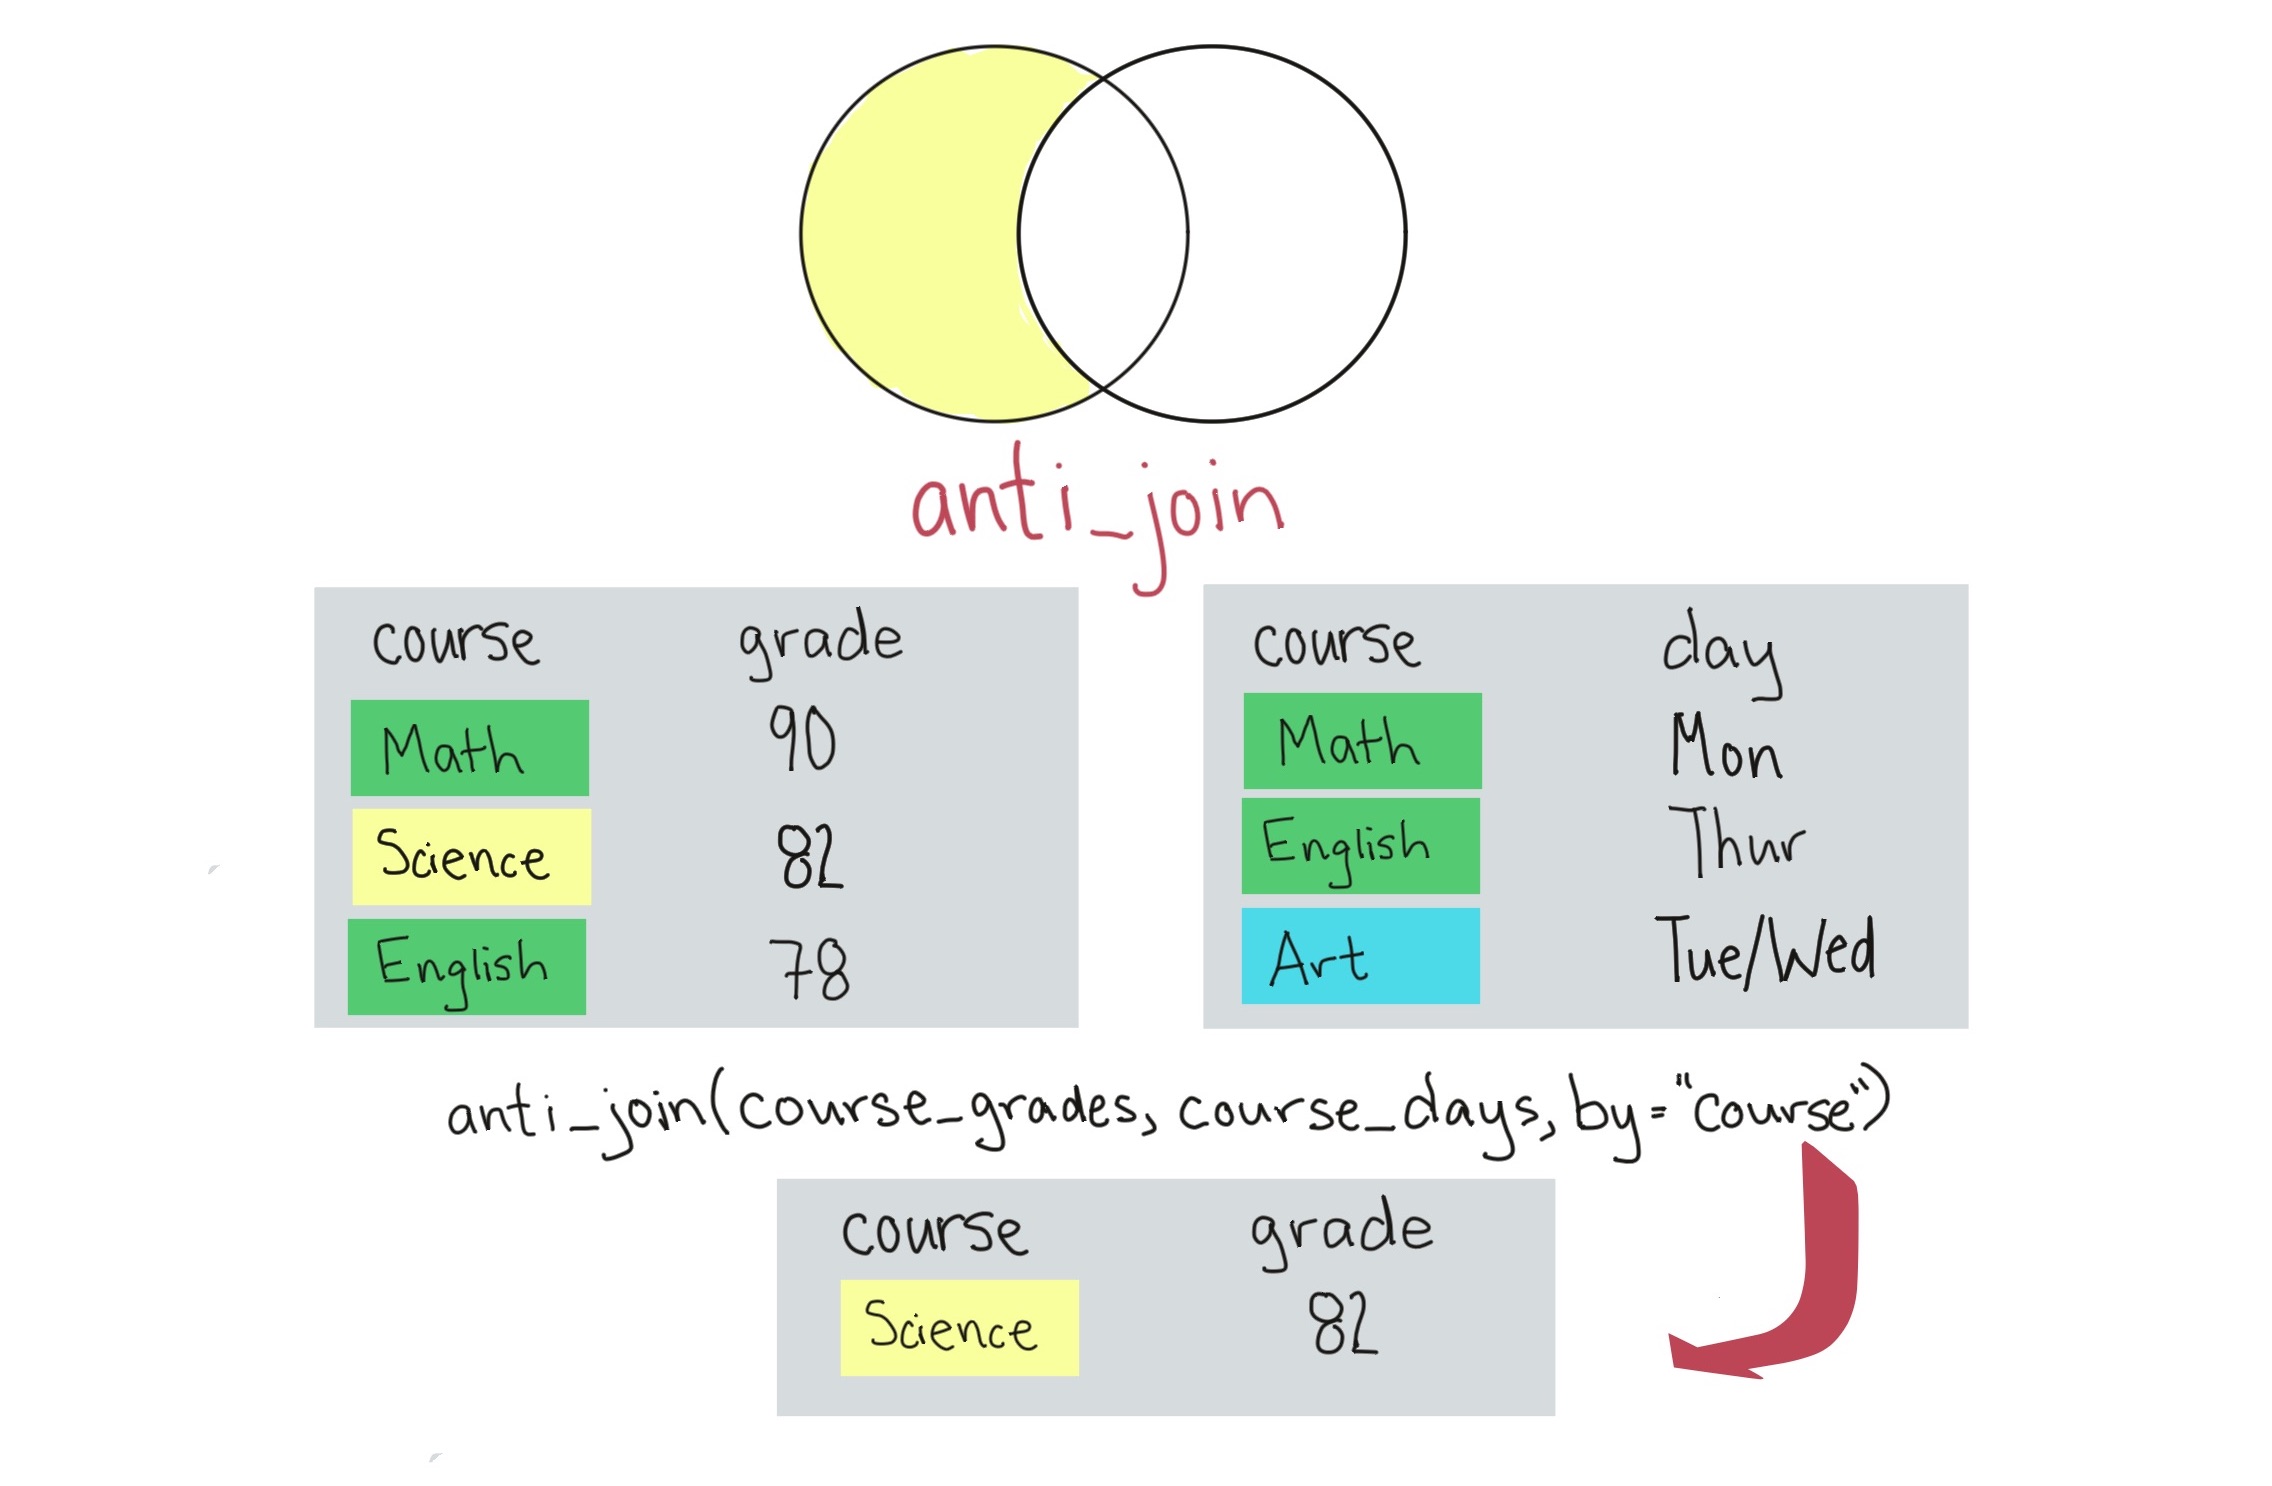 anti_join
course grade
Math 90
Science 82
English 78
course day
Math Mon
English Thur
Art Tue/Wed
anti_join(course_grades, course_days, by="course")
course grade
Science 82